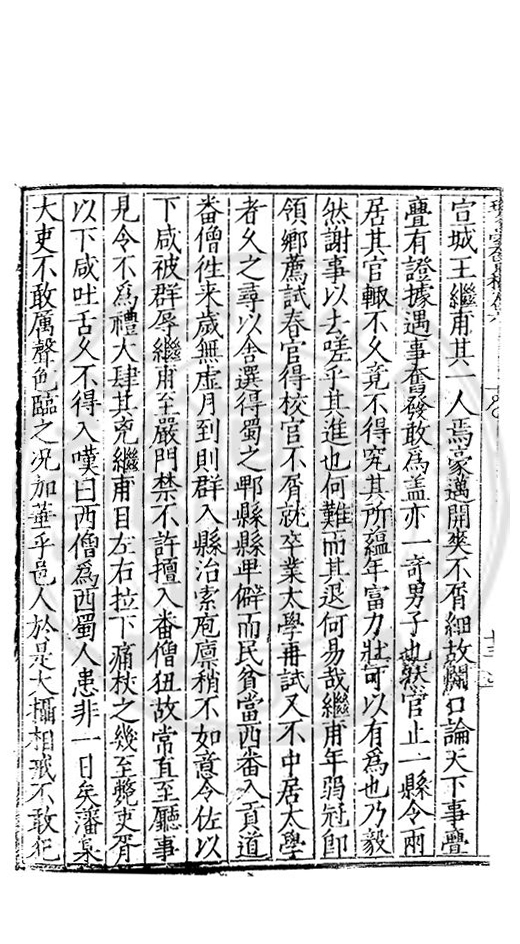 宣城王繼甫其一人焉豪邁開爽不屑細故闊口論天下事亹
亹有證據遇事奮發敢為盖亦一奇男子也然官止一縣令兩
居其官輙不久竟不得究其所蘊年富力壯可以有為也乃毅
然謝事以去嗟乎其進也何難而其退何易哉繼甫年弱冠即
領鄉薦試春官得校官不屑就卒業太學再試又不中居太學
者久之尋以舍選得蜀之郫縣縣卑僻而民貧當西番入貢道
番僧徃来歲無虛月到則群入縣治索庖廩稍不如意令佐以
下咸被群辱繼甫至嚴門禁不許擅入番僧狃故常直至廳事
見令不為禮大肆其兇繼甫目左右拉下痛杖之幾至斃吏胥
以下咸吐舌久不得入嘆曰西僧為西蜀人患非一日矣藩臬
大吏不敢厲聲色臨之況加箠乎邑人於是大攝相戒不敢犯